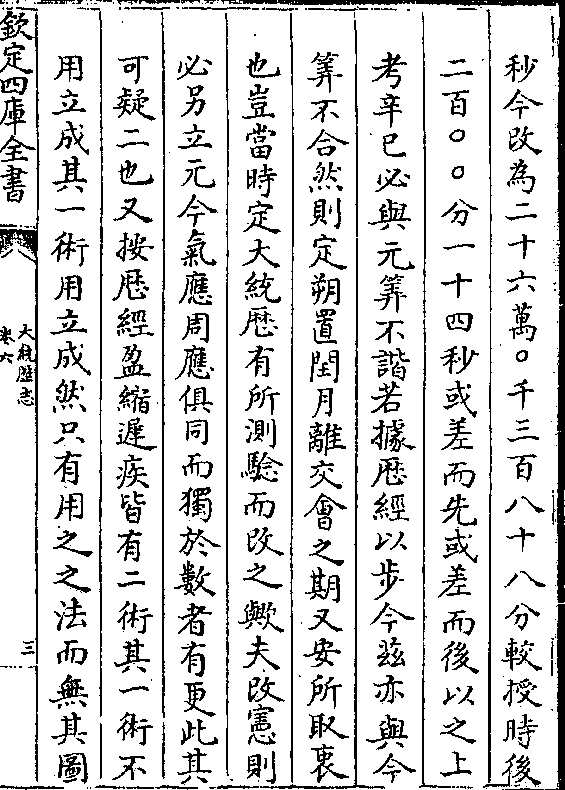 秒今改為二十六萬〇千三百八十八分較授時後
二百〇〇分一十四秒或差而先或差而後以之上
考辛巳必與元筭不諧若據厯經以步今兹亦與今
筭不合然則定朔置閏月離交會之期又安所取衷
也豈當時定大統厯有所測驗而改之歟夫改憲則
必另立元今氣應周應俱同而獨於數者有更此其
可疑二也又按厯經盈縮遲疾皆有二術其一術不
用立成其一術用立成然只有用之之法而無其圖
欽定四庫全書
大統厯志
卷六
三